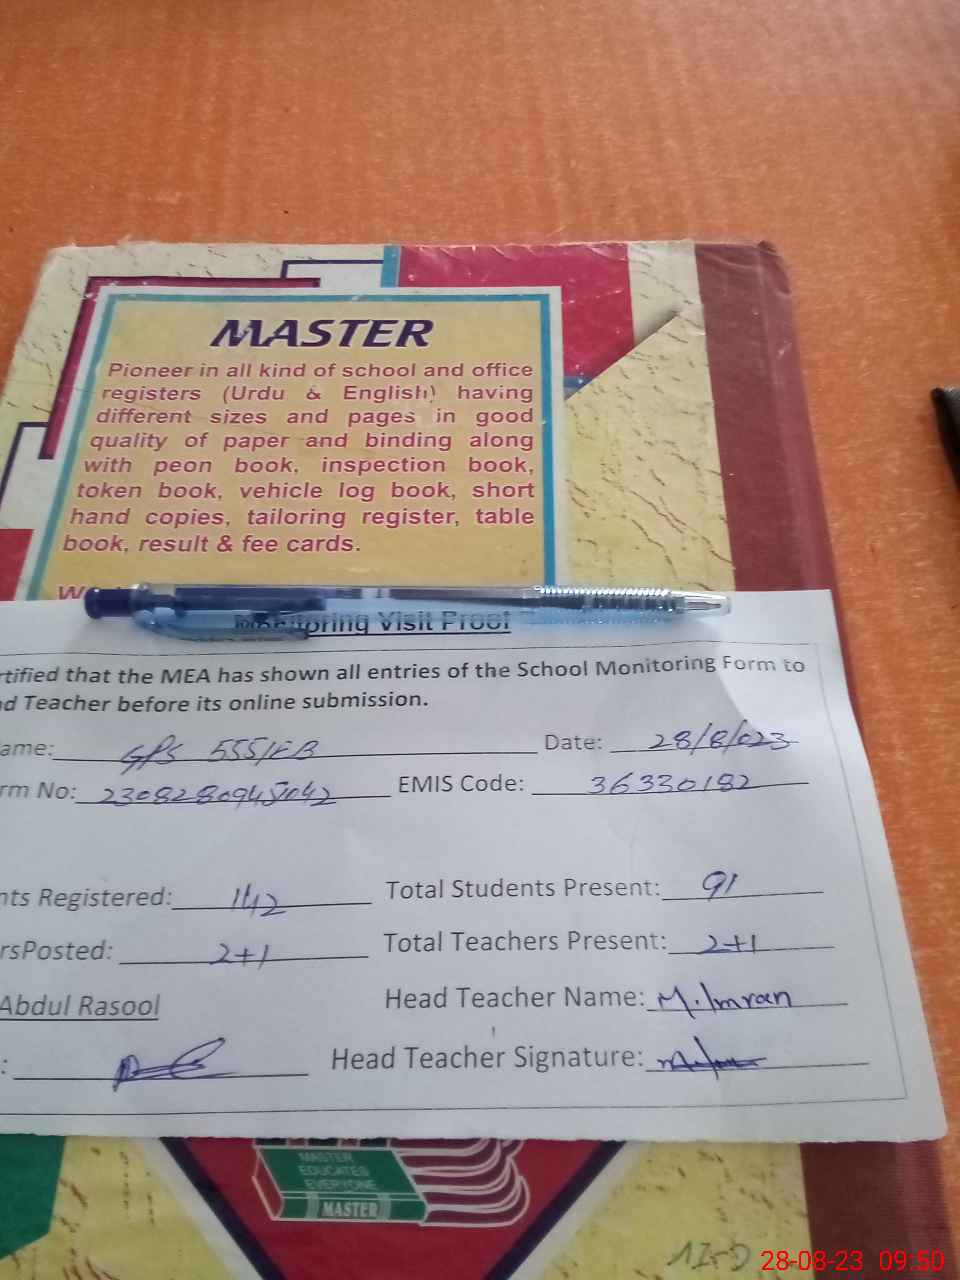 MASTER
Pioneer in all kind of school and office
registers (Urdu & English) having
different sizes and pages in good
quality of paper and binding along
with peon book, inspection book,
token book, vehicle log book, short
hand copies, tailoring register, table
book, result & fee cards.
Monitoring Visit Proof
rtified that the MEA has shown all entries of the School Monitoring Form to
d Teacher before its online submission.
ame: GPS 555/EB Date: 28/8/023
rm No: 2308280945042 EMIS Code: 36330182
nts Registered: 142 Total Students Present: 91
rsPosted: 2+1 Total Teachers Present: 2+1
Abdul Rasool Head Teacher Name: M.Imran
: Head Teacher Signature:
MASTER
EDUCATES
EVERYONE
MASTER
28-08-23 09:50